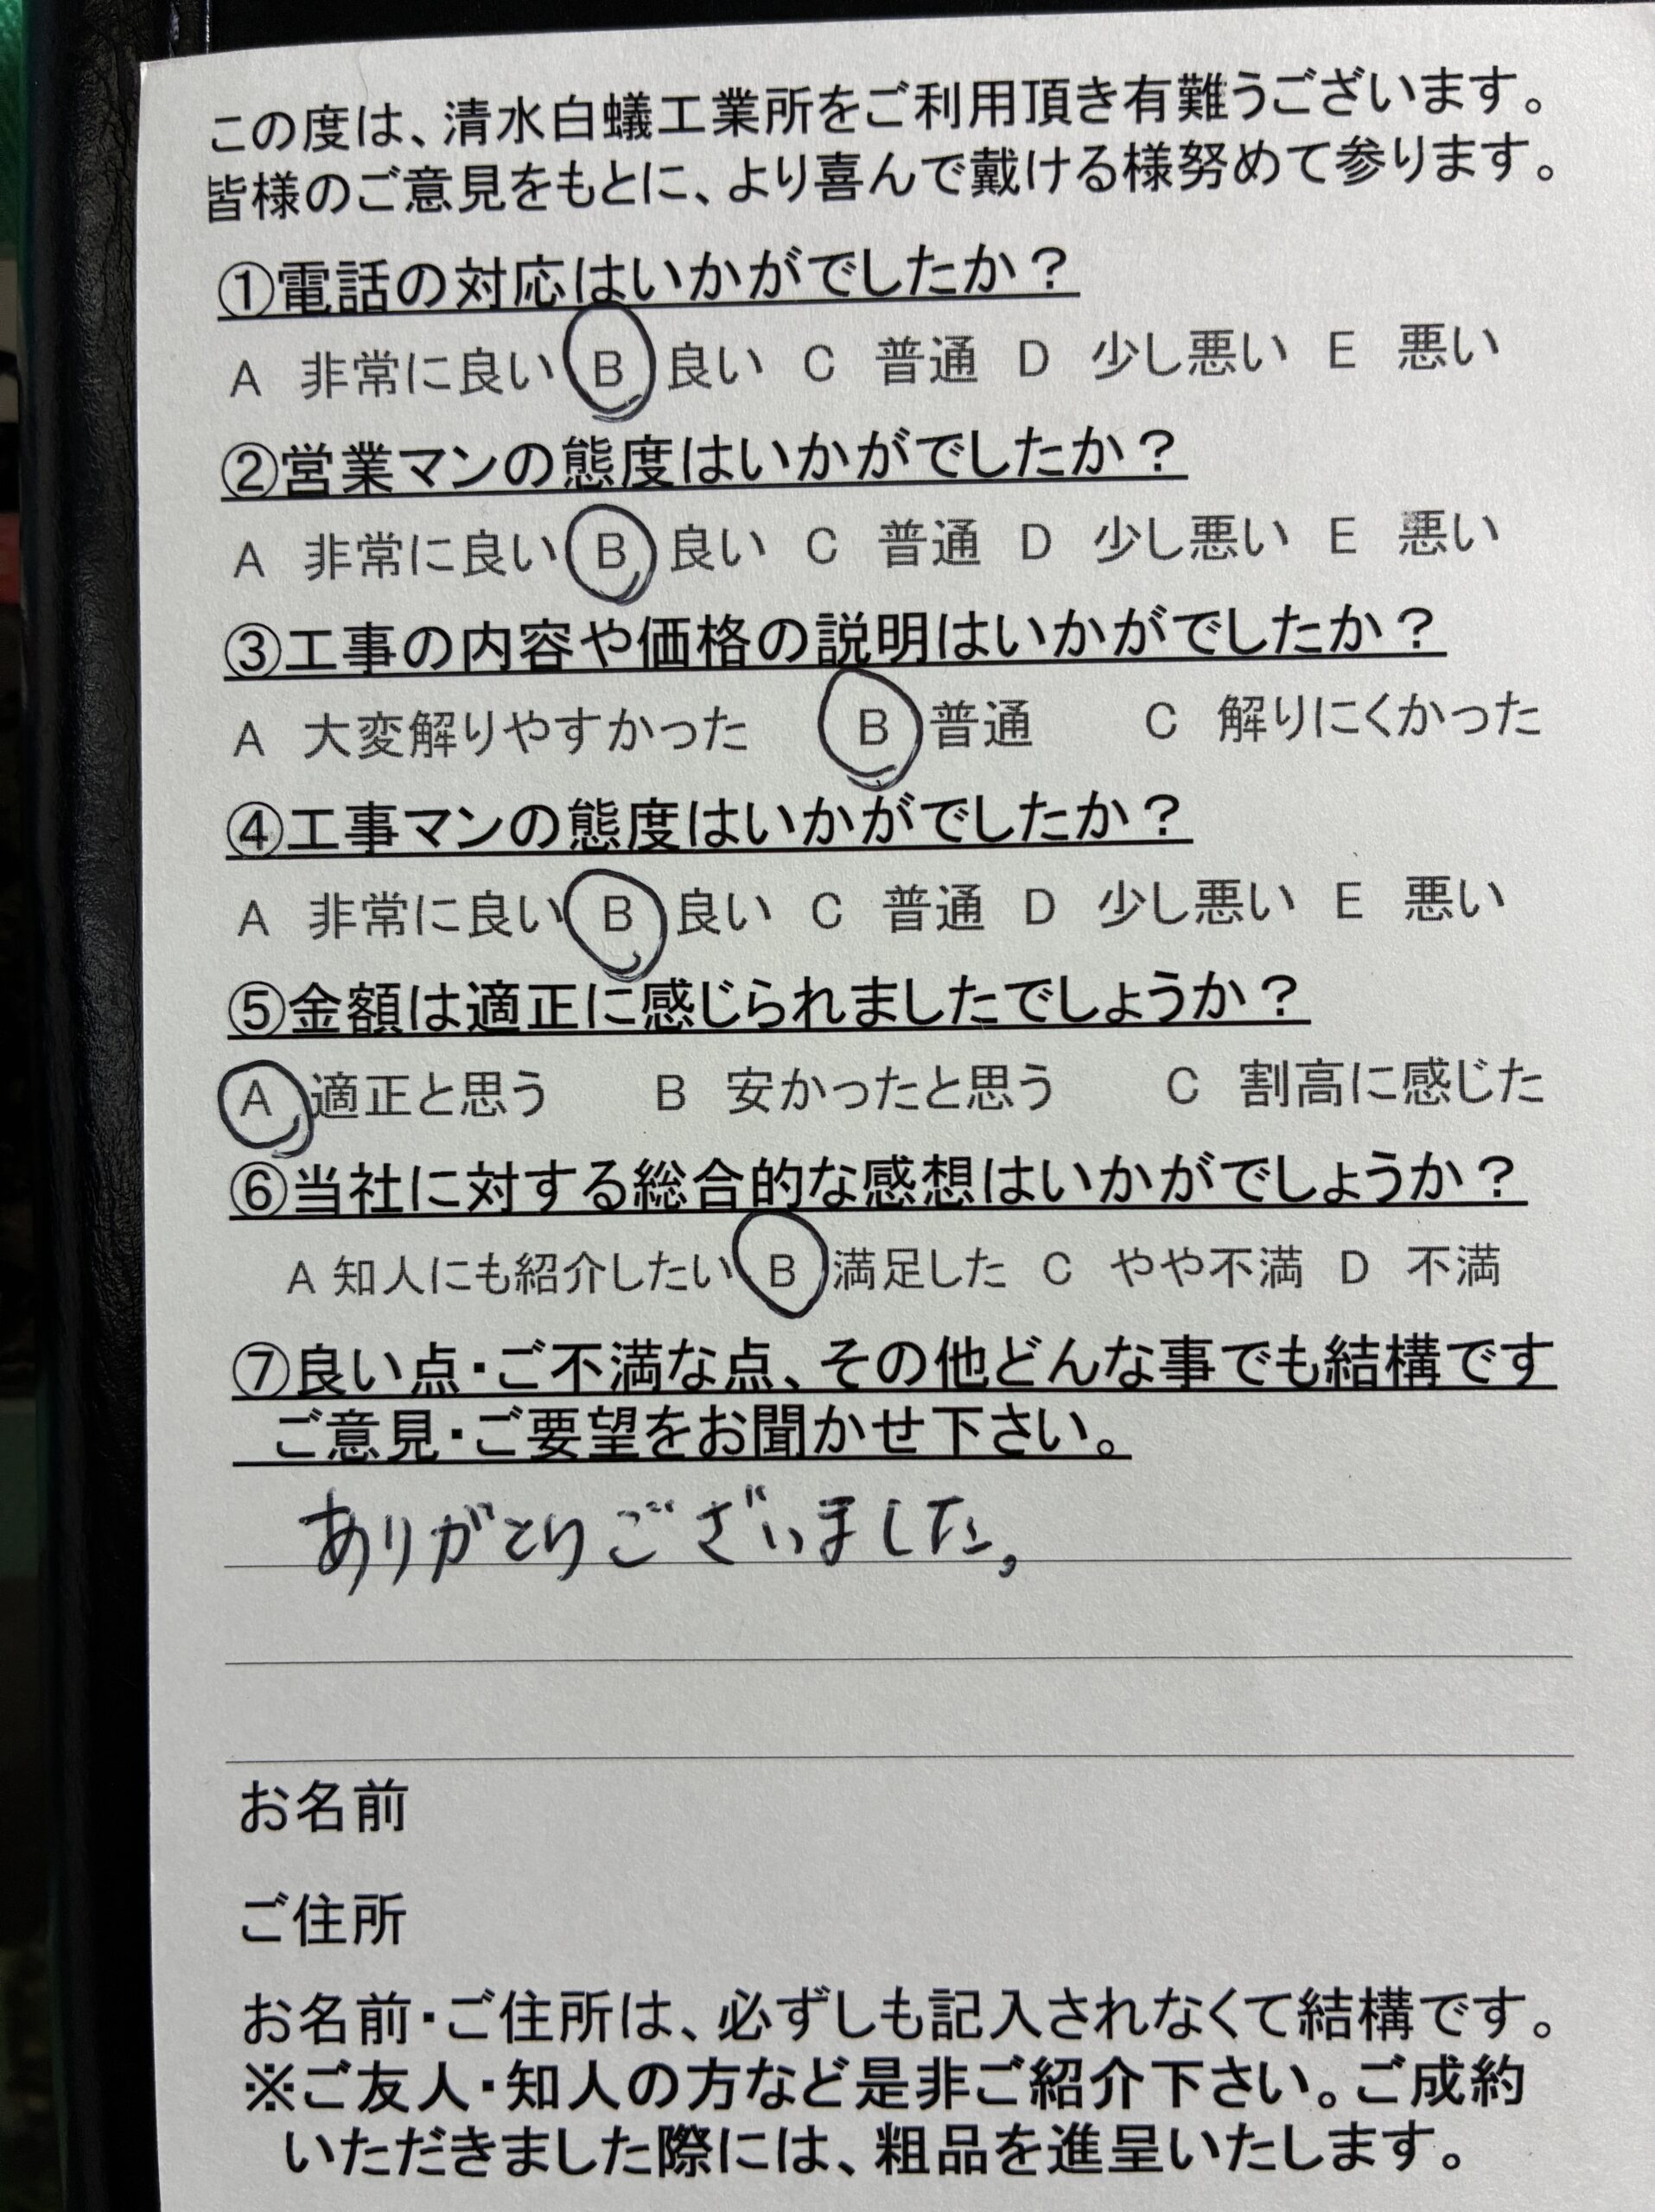 この度は、清水白蟻工業所をご利用頂き有難うございます。
皆様のご意見をもとに、より喜んで戴ける様努めて参ります。
①電話の対応はいかがでしたか？
A 非常に良い B 良い C 普通 D 少し悪い E 悪い
②営業マンの態度はいかがでしたか？
A 非常に良い B 良い C 普通 D 少し悪い E 悪い
③工事の内容や価格の説明はいかがでしたか？
A 大変解りやすかった B 普通 C 解りにくかった
④工事マンの態度はいかがでしたか？
A 非常に良い B 良い C 普通 D 少し悪い E 悪い
⑤金額は適正に感じられましたでしょうか？
A 適正と思う B 安かったと思う C 割高に感じた
⑥当社に対する総合的な感想はいかがでしょうか？
A 知人にも紹介したい B 満足した C やや不満 D 不満
⑦良い点・ご不満な点、その他どんな事でも結構です
ご意見・ご要望をお聞かせ下さい。
ありがとうございました。
お名前
ご住所
お名前・ご住所は、必ずしも記入されなくて結構です。
※ご友人・知人の方など是非ご紹介下さい。ご成約
いただきました際には、粗品を進呈いたします。